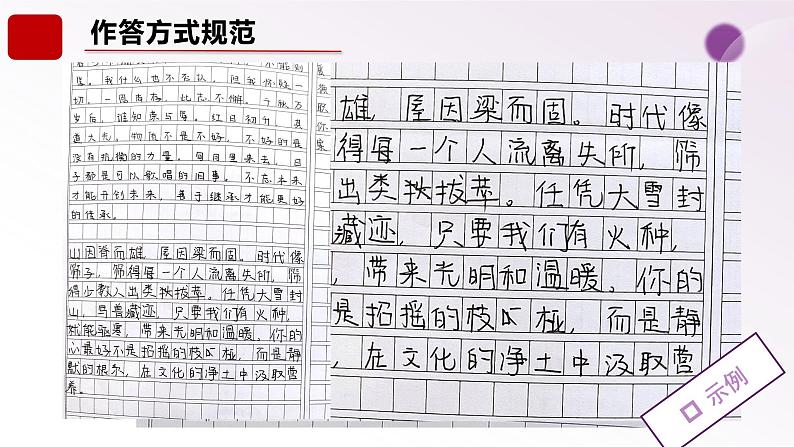 作答方式规范
切，一息尚存，此志不懈。千秋万
岁后，谁知荣与辱。红日初升，其
道大光。物质不是不好，不好的是
没有抗衡的力量。每日里来去，日
子都是可以歌唱的旧事。不忘本来
才能开创未来，善于继承才能更好
的传承。
山因脊而雄，屋因梁而固。时代像
筛子，筛得每一个人流离失所，筛
得少数人出类拔萃。任凭大雪封
山，鸟兽藏迹，只要我们有火种，
就能驱寒，带来光明和温暖。你的
心最好不是招摇的枝桠，而是静
默的根系，在文化的净土中汲取营
养。
雄，屋因梁而固。时代像
得每一个人流离失所，筛
出类拔萃。任凭大雪封
藏迹，只要我们有火种，
，带来光明和温暖。你的
是招摇的枝桠，而是静
，在文化的净土中汲取营
示例